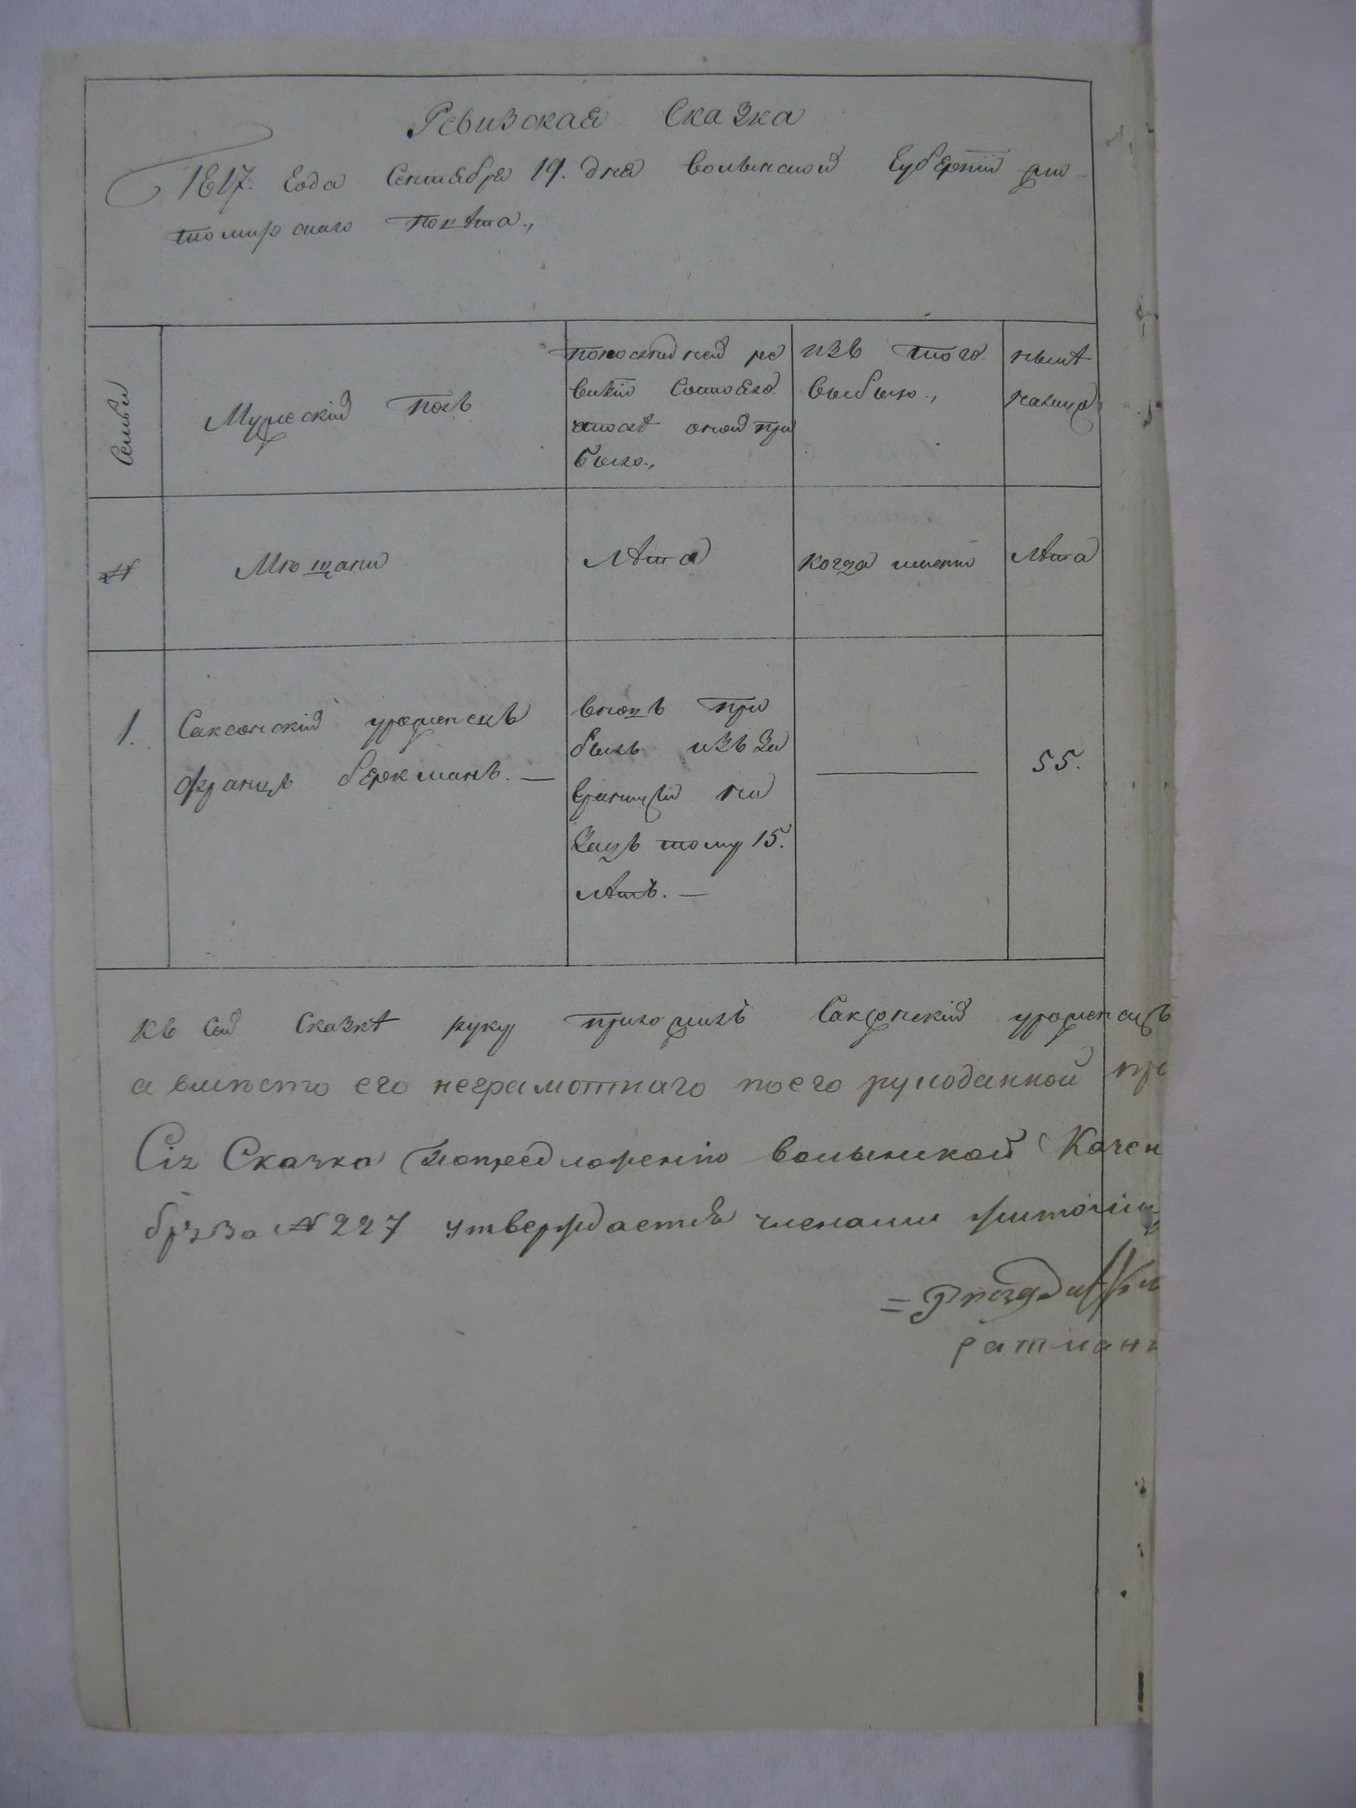 Ревизская Сказка
1817. Года Сентебря 19. дня волынской Губернiи жи-
томирскаго повѣта.,
Семьи
Мужескiй полъ
попоследней ре
визiи Состояло
апослѣ оной при
было.,
изъ того
выбыло.,
нынѣ
налицо
№
Мещани
лѣта
когда именно
лѣта
1.
Саксонскiй уроженецъ
францъ беркманъ. —
вновь при
былъ изъ за
границiи на
задъ тому 15.
лѣтъ. —
55.
къ сей Сказкѣ руку приложилъ Саксонскiй уроженецъ
а вместо его неграмотнаго поего рукоданной про
Сiя Сказка попредложенiю волынской Казен
бря За № 227 утверждается членами житомир
ратманъ